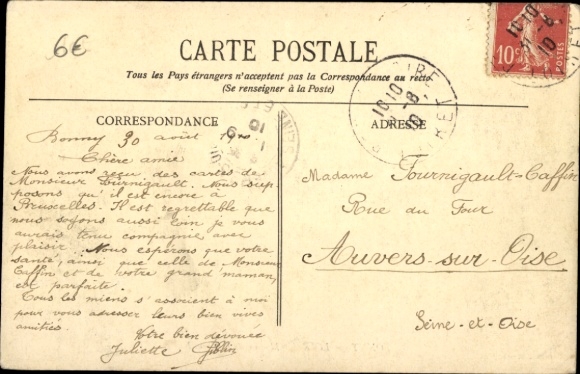 6€
CARTE POSTALE
Tous les Pays étrangers n'acceptent pas la Correspondance au recto
(Se renseigner à la Poste)
10c
16 10
31 -8
10
16 10
-8
10
LOIRE
CORRESPONDANCE
ADRESSE
Bonny 30 août 1910
Chère amie
Nous avons reçu des cartes de
Monsieur Fournigault. Nous sup-
posons qu'il est encore à
Bruxelles. Il est regrettable que
nous soyons aussi loin je vous
aurais tenu compagnie avec
plaisir. Nous espérons que votre
santé, ainsi que celle de Monsieur
Caffin et de votre grand'maman,
est parfaite.
Tous les miens s'associent à moi
pour vous adresser leurs bien vives
amitiés.
Votre bien dévouée
Juliette
Madame Fournigault-Caffin
Rue du Four
Auvers-sur-Oise
Seine-et-Oise